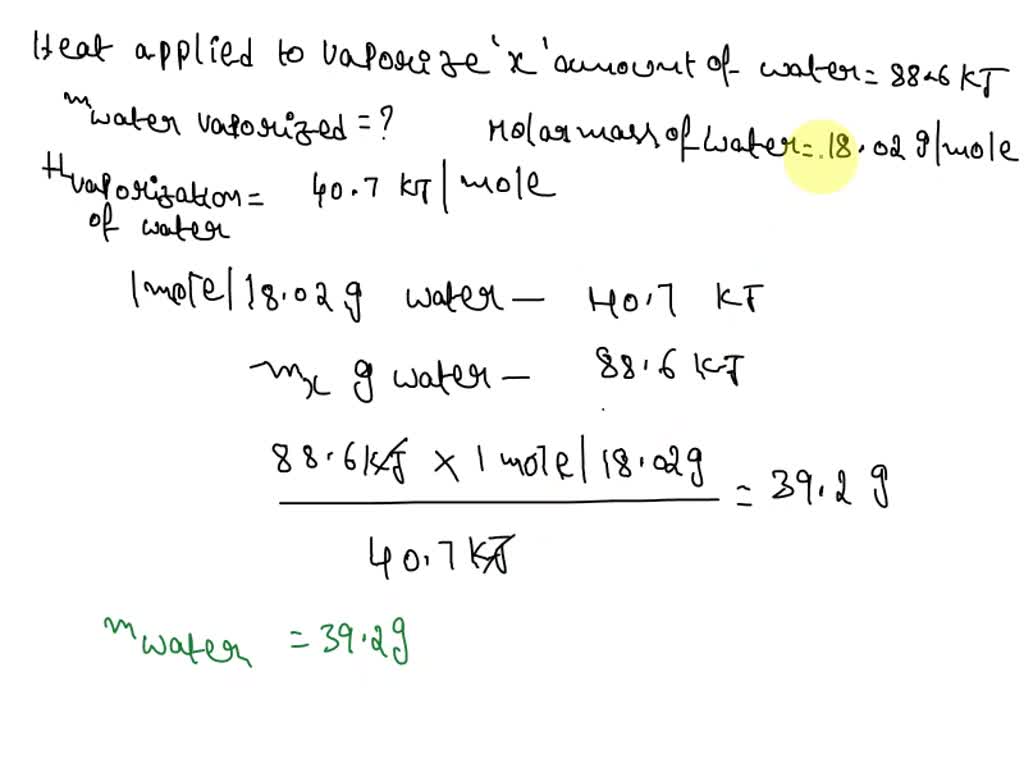 Heat applied to vaporize 'x' amount of water = 88.6 KJ
m water vaporized = ? Molar mass of water = 18.02 g/mole
H vaporization of water = 40.7 KJ/mole
1 mole/18.02 g water - 40.7 KJ
mx g water - 88.6 KJ
88.6 KJ x 1 mole/18.02g = 39.2 g
40.7 KJ
m water = 39.2g